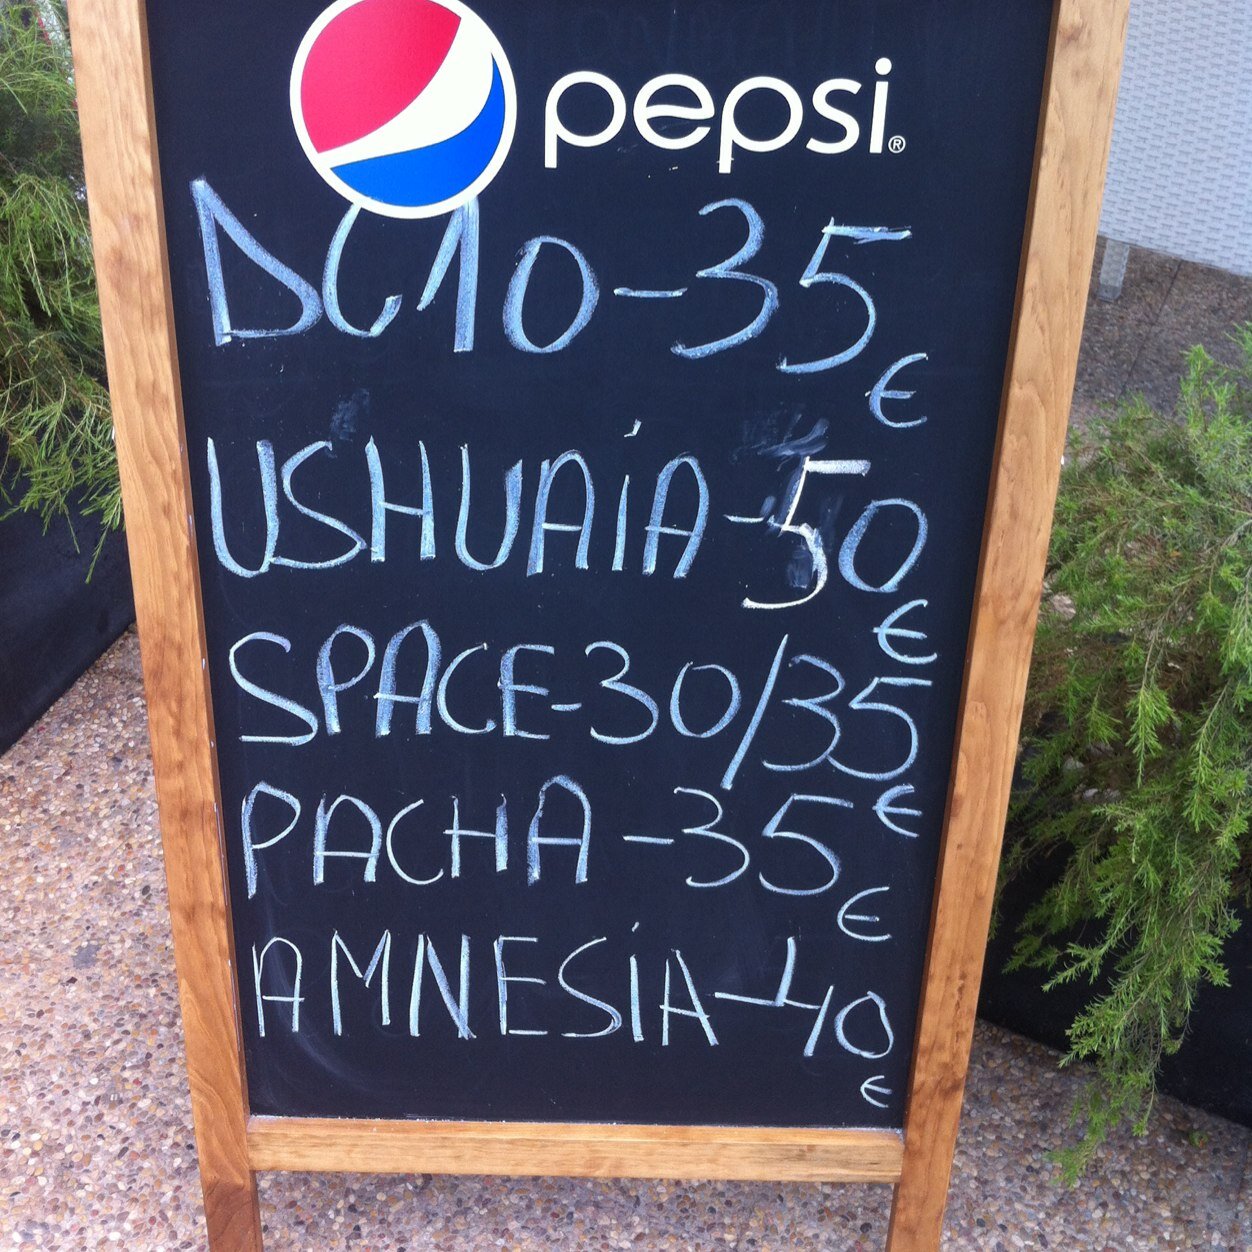 pepsi®
DC10-35€
USHUAiA-50€
SPACE-30/35€
PACHA-35€
AMNESiA-40€